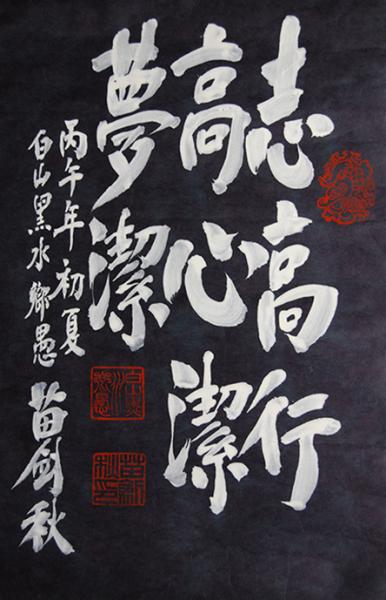 志高行
高心潔
夢潔
丙午年初夏
白山黑水鄉愚苗劍秋